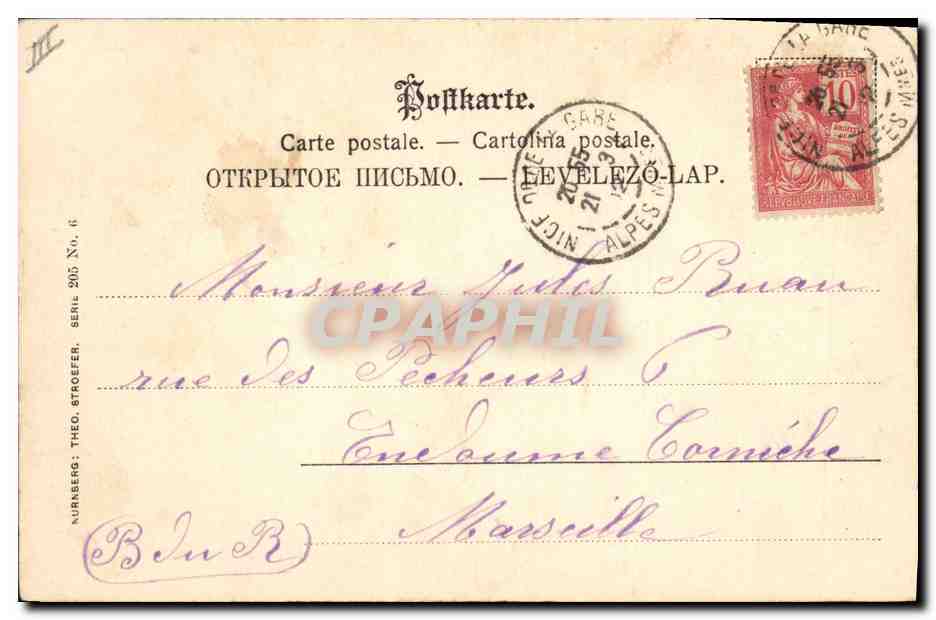 III
Postkarte.
Carte postale. — Cartolina postale.
ОТКРЫТОЕ ПИСЬМО. — LEVELEZŐ-LAP.
NICE GARE
20 55
21
12
ALPES
10
POSTES
REPUBLIQUE FRANÇAISE
LA GARE
NICE
21
12
ALPES MMES
Monsieur Jules Ruau
CPAPHIL
rue des Pêcheurs 6
Endoume Corniche
Marseille
(B du R)
NURNBERG: THEO. STROEFER. SERIE 205 No. 6